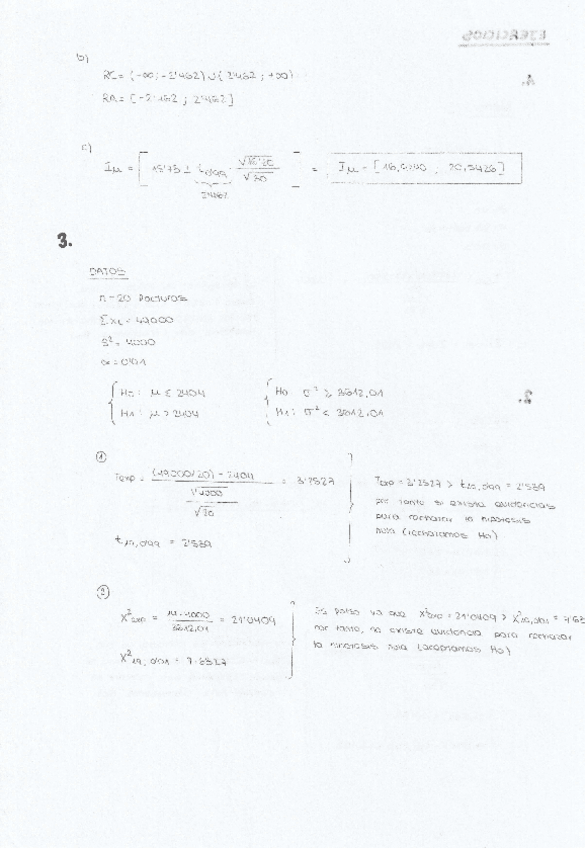 EJERCICIOS
b)
RC = (-∞; -2'462) ∪ (2'462; +∞)
RA = [-2'462 ; 2'462]
c)
Iμ = [ 18'75 ± t0'99 √ /√ ] = Iμ = [ ; 20,5426 ]
2'462
3.
DATOS
n = 20
Σxi = 49000
S² = 4000
α = 0'01
H0: μ ≤ 2404 H0: σ² ≥ 3612,01
H1: μ > 2404 H1: σ² < 3612,01
①
Texp = (49000/20) - 2404 / √4000/√20 = 3'2527
t19,0'99 = 2'539
Texp = 3'2527 > t19,0'99 = 2'539
por tanto si existe evidencias
para rechazar la hipotesis
nula (rechazamos H0)
②
X²exp = /3612,01 = 21'0409
X²19,0'01 = 7'6327
Es falso ya que X²exp = 21'0409 > X²19,0'01 = 7'63
por tanto, no existe evidencia para rechazar
la hipotesis nula (aceptamos H0)